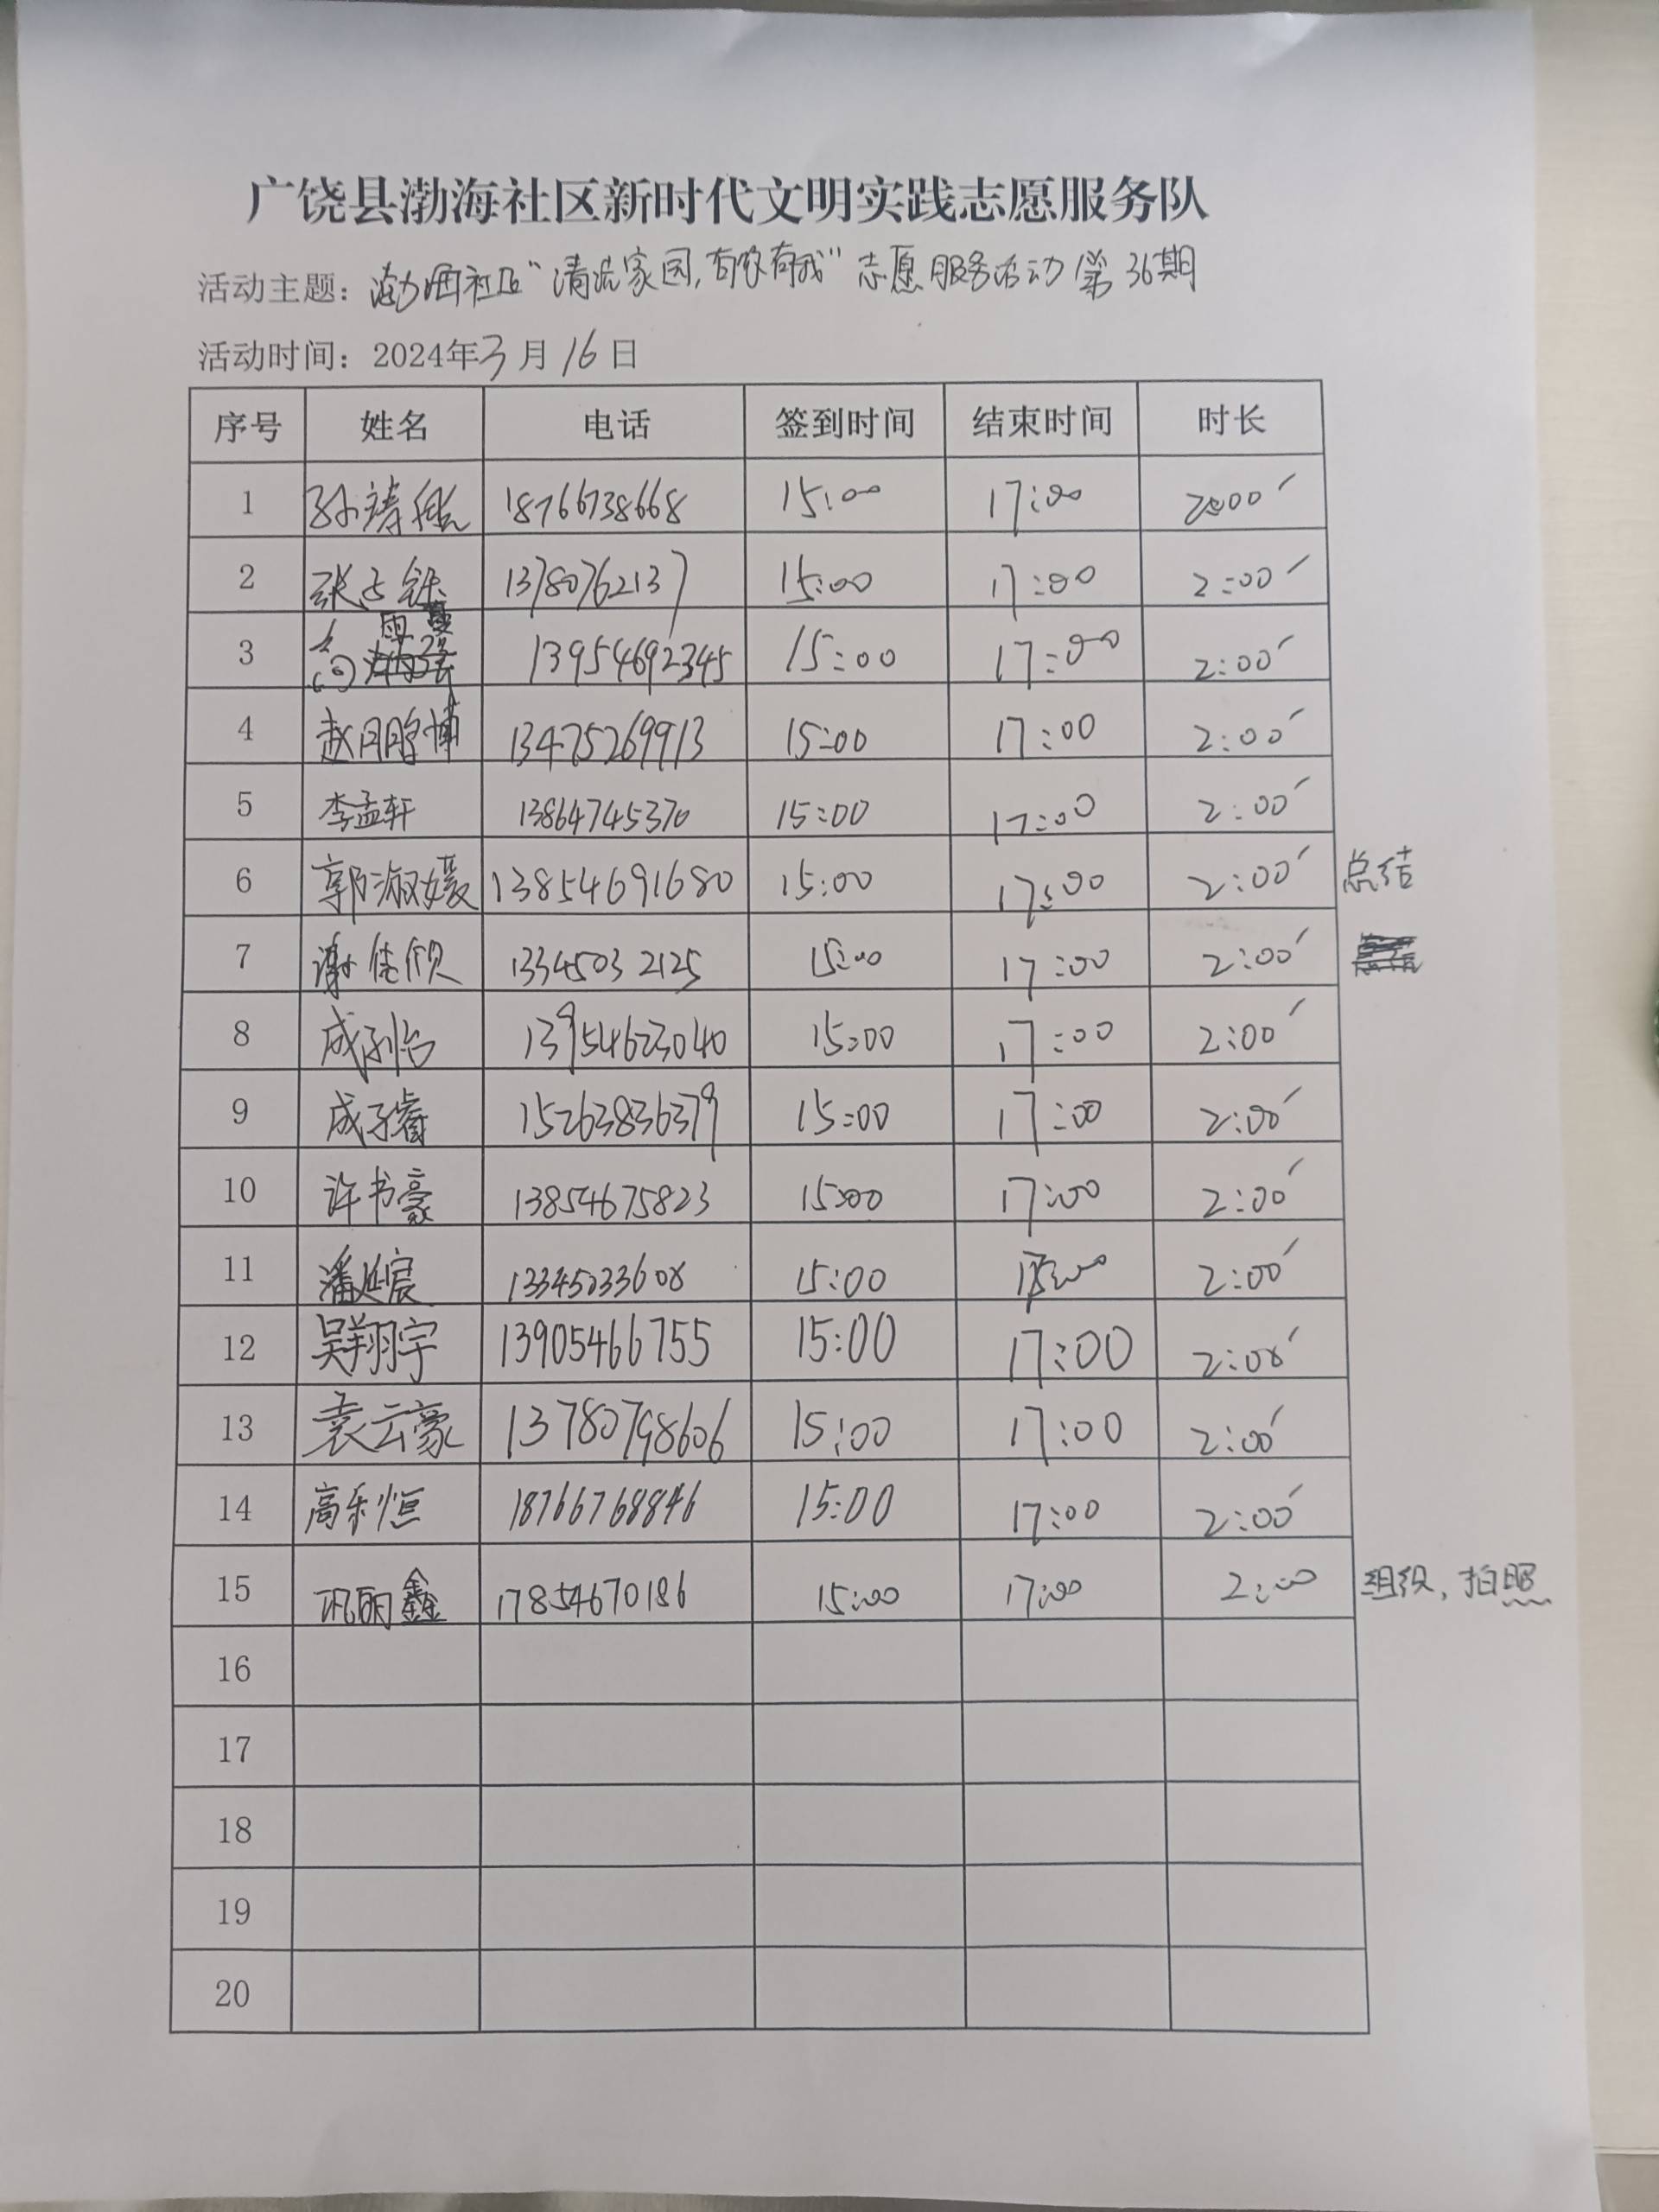 广饶县渤海社区新时代文明实践志愿服务队
活动主题：渤海社区“清洁家园，有你有我”志愿服务活动第36期
活动时间：2024年3月16日
序号 姓名 电话 签到时间 结束时间 时长
1 孙 18766738668 15:00 17:00 2:00
2 张 13780762137 15:00 17:00 2:00
3 13954692345 15:00 17:00 2:00
4 赵鹏博 13475269913 15:00 17:00 2:00
5 李孟轩 13864745370 15:00 17:00 2:00
6 郭淑媛 13854691680 15:00 17:00 2:00 总结
7 谢佳颀 13345032125 15:00 17:00 2:00
8 成 13954623040 15:00 17:00 2:00
9 成子睿 15263836379 15:00 17:00 2:00
10 许书豪 13854675823 15:00 17:00 2:00
11 潘延宸 13345033608 15:00 17:00 2:00
12 吴翔宇 13905466755 15:00 17:00 2:00
13 袁云豪 13780798606 15:00 17:00 2:00
14 高乐恒 18766768846 15:00 17:00 2:00
15 巩丽鑫 17854670186 15:00 17:00 2:00 组织，拍照
16
17
18
19
20